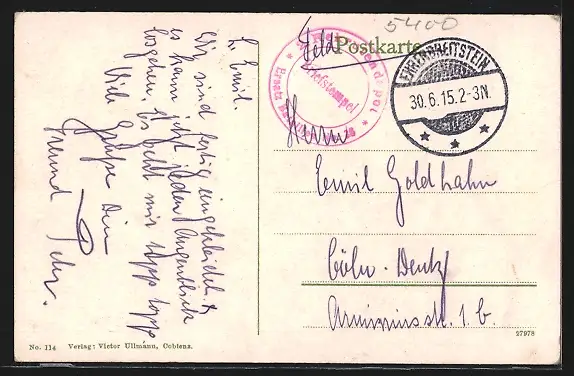 5400
Feld Postkarte
Briefstempel
Ersatz
EHRENBREITSTEIN
30.6.15.2-3N.
L. Emil.
Wir sind fertig eingekleidet &
es kann jetzt jeden Augenblick
losgehen. Es geht mir tipp topp
Viele Grüße Dein
Freund Petr.
Herrn
Emil Goldhahn
Cöln-Deutz
Arminiusstr. 1 b.
No. 114 Verlag: Victor Ullmann, Coblenz.
27978